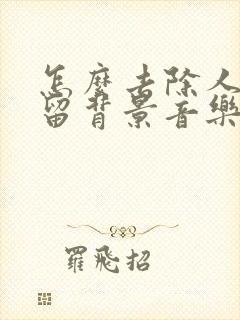 怎麼去除人
留背景音樂
羅飛招